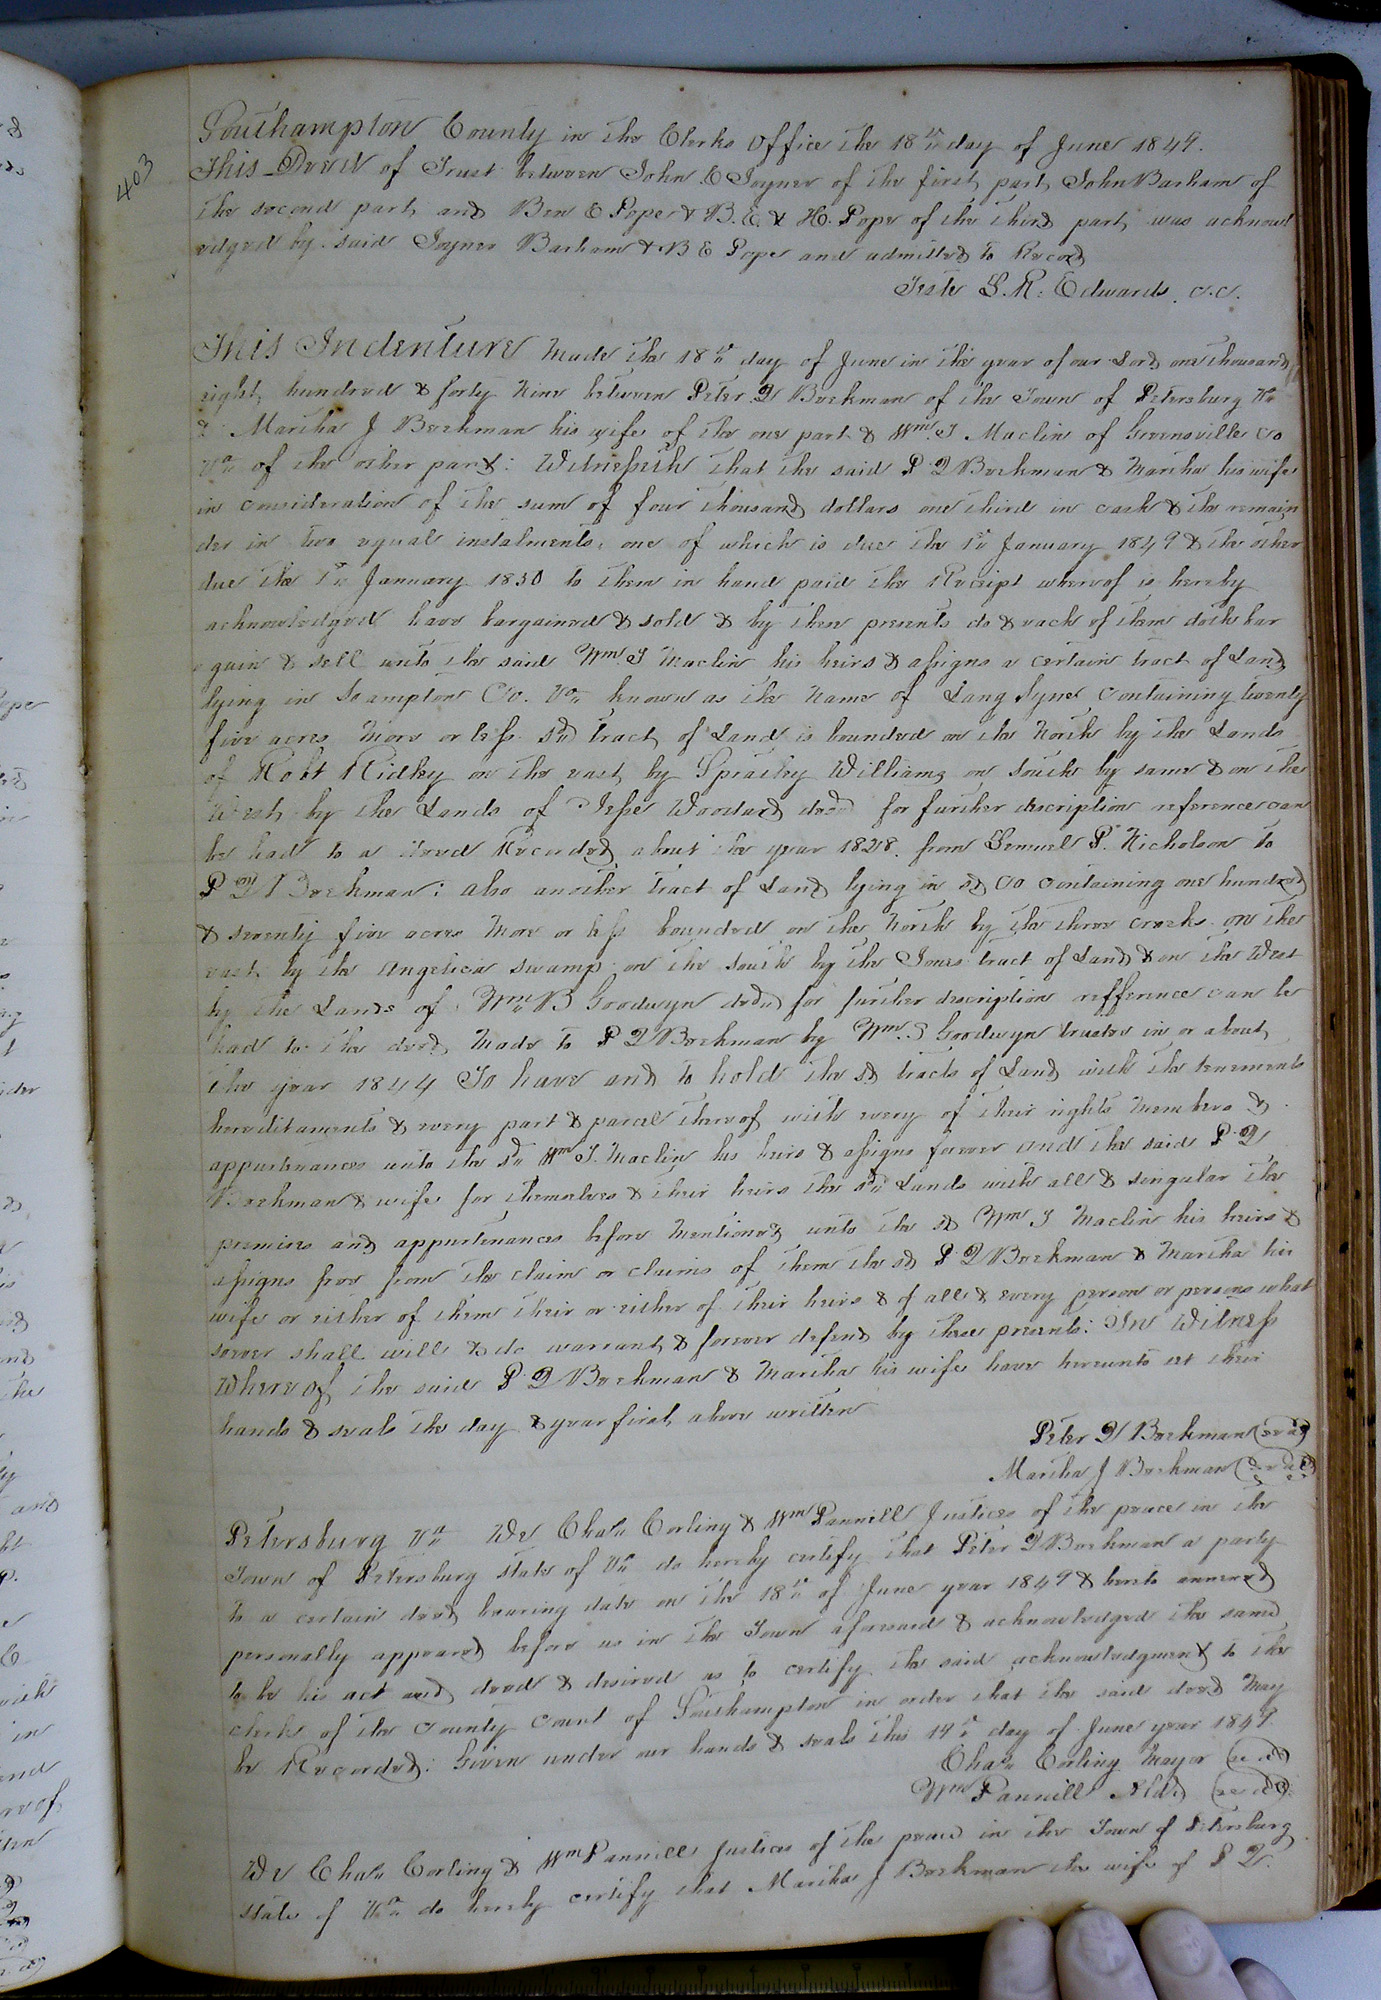 403
Southampton County in the Clerks Office the 18th day of June 1849.
This Deed of Trust between John E Joyner of the first part, John Barham of
the second part, and Ben E Pope & B. E. & H. Pope of the third part, was acknowl
edged by said Joyner Barham & B E Pope and admitted to Record
Teste L. R. Edwards. C.C.
This Indenture Made the 18th day of June in the year of our Lord one thousand
eight hundred & forty Nine between Peter Q Beckman of the Town of Petersburg Va
& Martha J Beckman his wife of the one part & Wm. T Maclin of Greensville Co
Va of the other part: Witnesseth that the said P Q Beckman & Martha his wife
in consideration of the sum of four thousand dollars one third in cash & the remain
der in two equal instalments, one of which is due the 1st January 1849 & the other
due the 1st January 1850 to them in hand paid the Receipt whereof is hereby
acknowledged have bargained & sold & by these presents do & each of them doth bar
gain & sell unto the said Wm. T Maclin his heirs & assigns a certain tract of Land
lying in Sampton Co. Va known as the Name of Lang Syne containing twenty
five acres More or less. Sd tract of Land is bounded on the North by the Lands
of Robt Ridley on the east, by Spratley Williams on South by same & on the
West by the Lands of Jesse Woodard decd for further description reference can
be had to a deed Recorded about the year 1828. from Lemuel P. Nicholson to
P Q Beckman: also another tract of Land lying in sd Co containing one hundred
& seventy five acres More or less bounded on the North by the three creeks on the
east by the Angelica swamp on the South by the Jones tract of Land & on the West
by the Lands of Wm B Goodwyn decd for further description refference can be
had to the deed Made to P Q Beckman by Wm. S Goodwyn trustee in or about
the year 1844 To have and to hold the sd tracts of Land with the tenements
hereditaments & every part & parcel thereof with every of their rights Members &
appurtenances unto the sd Wm T. Maclin his heirs & assigns forever and the said P Q
Beckman & wife for themselves & their heirs the sd Lands with all & singular the
premises and appurtenances before Mentioned unto the sd Wm T Maclin his heirs &
assigns free from the claim or claims of them the sd P Q Beckman & Martha his
wife or either of them their or either of their heirs & of all & every person or persons what
soever shall will & do warrant & forever defend by these presents: In Witness
Whereof the said P Q Beckman & Martha his wife have hereunto set their
hands & seals the day & year first above written
Peter Q Beckman (seal)
Martha J Beckman (seal)
Petersburg Va We Chas Corling & Wm Pannill Justices of the peace in the
Town of Petersburg state of Va do hereby certify that Peter Q Beckman a party
to a certain deed bearing date on the 18th of June year 1849 & hereto annexed
personally appeared before us in the Town aforesaid & acknowledged the same
to be his act and deed & desired us to certify the said acknowledgment to the
clerk of the County Court of Southampton in order that the said deed May
be Recorded: Given under our hands & seals this 19th day of June year 1849
Chas Corling Mayor (seal)
Wm Pannill Ald. (seal)
We Chas Corling & Wm Pannill Justices of the peace in the Town of Petersburg
state of Va do hereby certify that Martha J Beckman the wife of P Q.